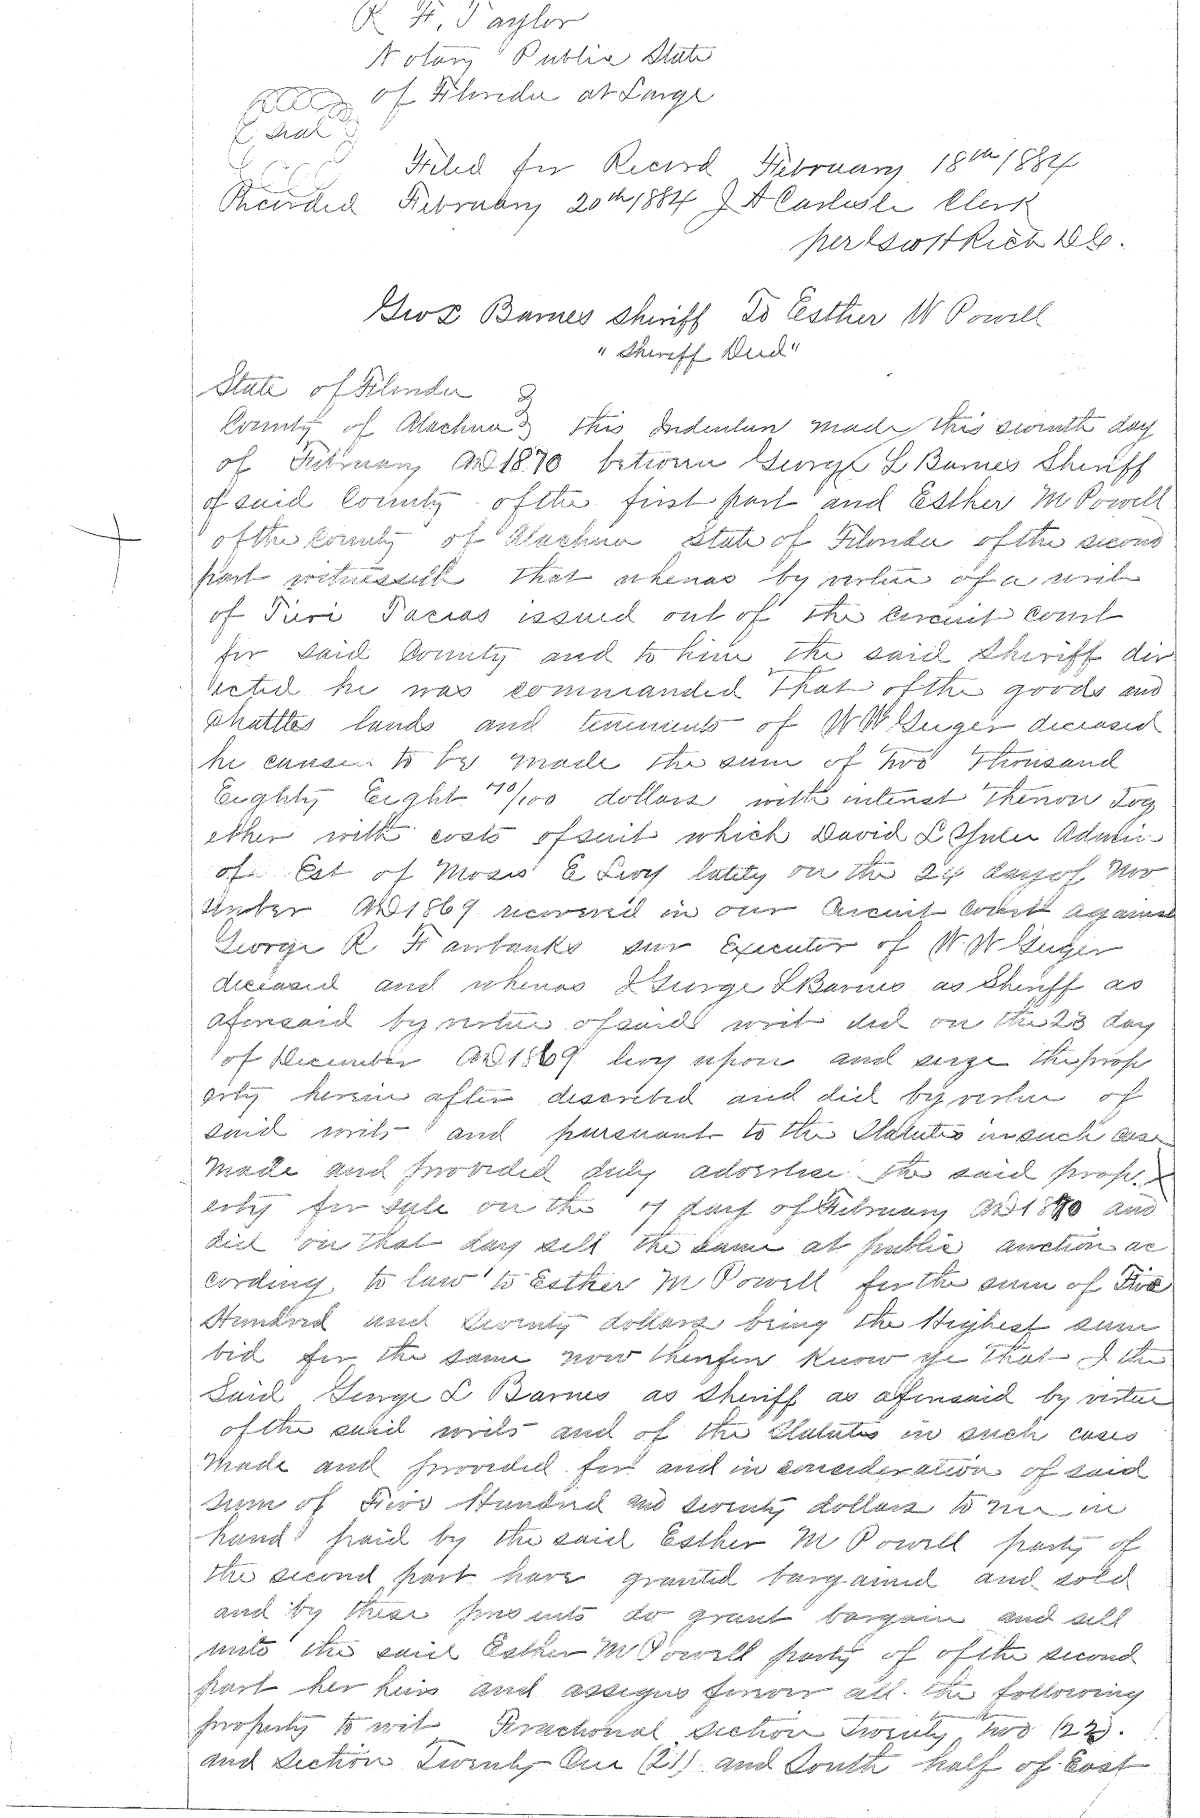 R. H. Taylor
Notary Public State
of Florida at Large
Seal
Filed for Record February 18th 1884
Recorded February 20th 1884 J A Carlisle Clerk
per Rich D.C.
Geo L Barnes Sheriff To Esther W Powell
"Sheriff Deed"
State of Florida
County of Alachua this Indenture made this seventh day
of February AD 1870 between George L Barnes Sheriff
of said County of the first part and Esther M Powell
of the County of Alachua State of Florida of the second
part witnesseth that whereas by virtue of a writ
of Fieri Facias issued out of the circuit court
for said County and to him the said Sheriff dir
ected he was commanded that of the goods and
Chattles lands and tenements of W W Geiger deceased
he cause to be made the sum of two thousand
Eighty Eight 70/100 dollars with interest thereon Tog
ether with costs of suit which David L Yulee Admin
of Est of Moses E Levy lately on the 24 day of Nov
ember AD 1869 recovered in our Circuit court against
George R Fairbanks sur Executor of W W Geiger
deceased and whereas I George L Barnes as Sheriff as
aforesaid by virtue of said writ did on the 23 day
of December AD 1869 levy upon and seize the prop
erty herein after described and did by virtue of
said writs and pursuant to the Statutes in such case
made and provided duly advertise the said prop.
erty for sale on the 7 day of February AD 1870 and
did on that day sell the same at public auction ac
cording to law to Esther M Powell for the sum of Five
Hundred and Seventy dollars being the Highest sum
bid for the same now therefore Know ye that I the
Said George L Barnes as Sheriff as aforesaid by virtue
of the said writs and of the Statutes in such cases
made and provided for and in consideration of said
sum of Five Hundred and seventy dollars to me in
hand paid by the said Esther M Powell party of
the second part have granted bargained and sold
and by these presents do grant bargain and sell
unto the said Esther M Powell party of of the second
part her heirs and assigns forever all the following
property to wit Fractional section Twenty two (22).
and Section Twenty One (21) and South half of East